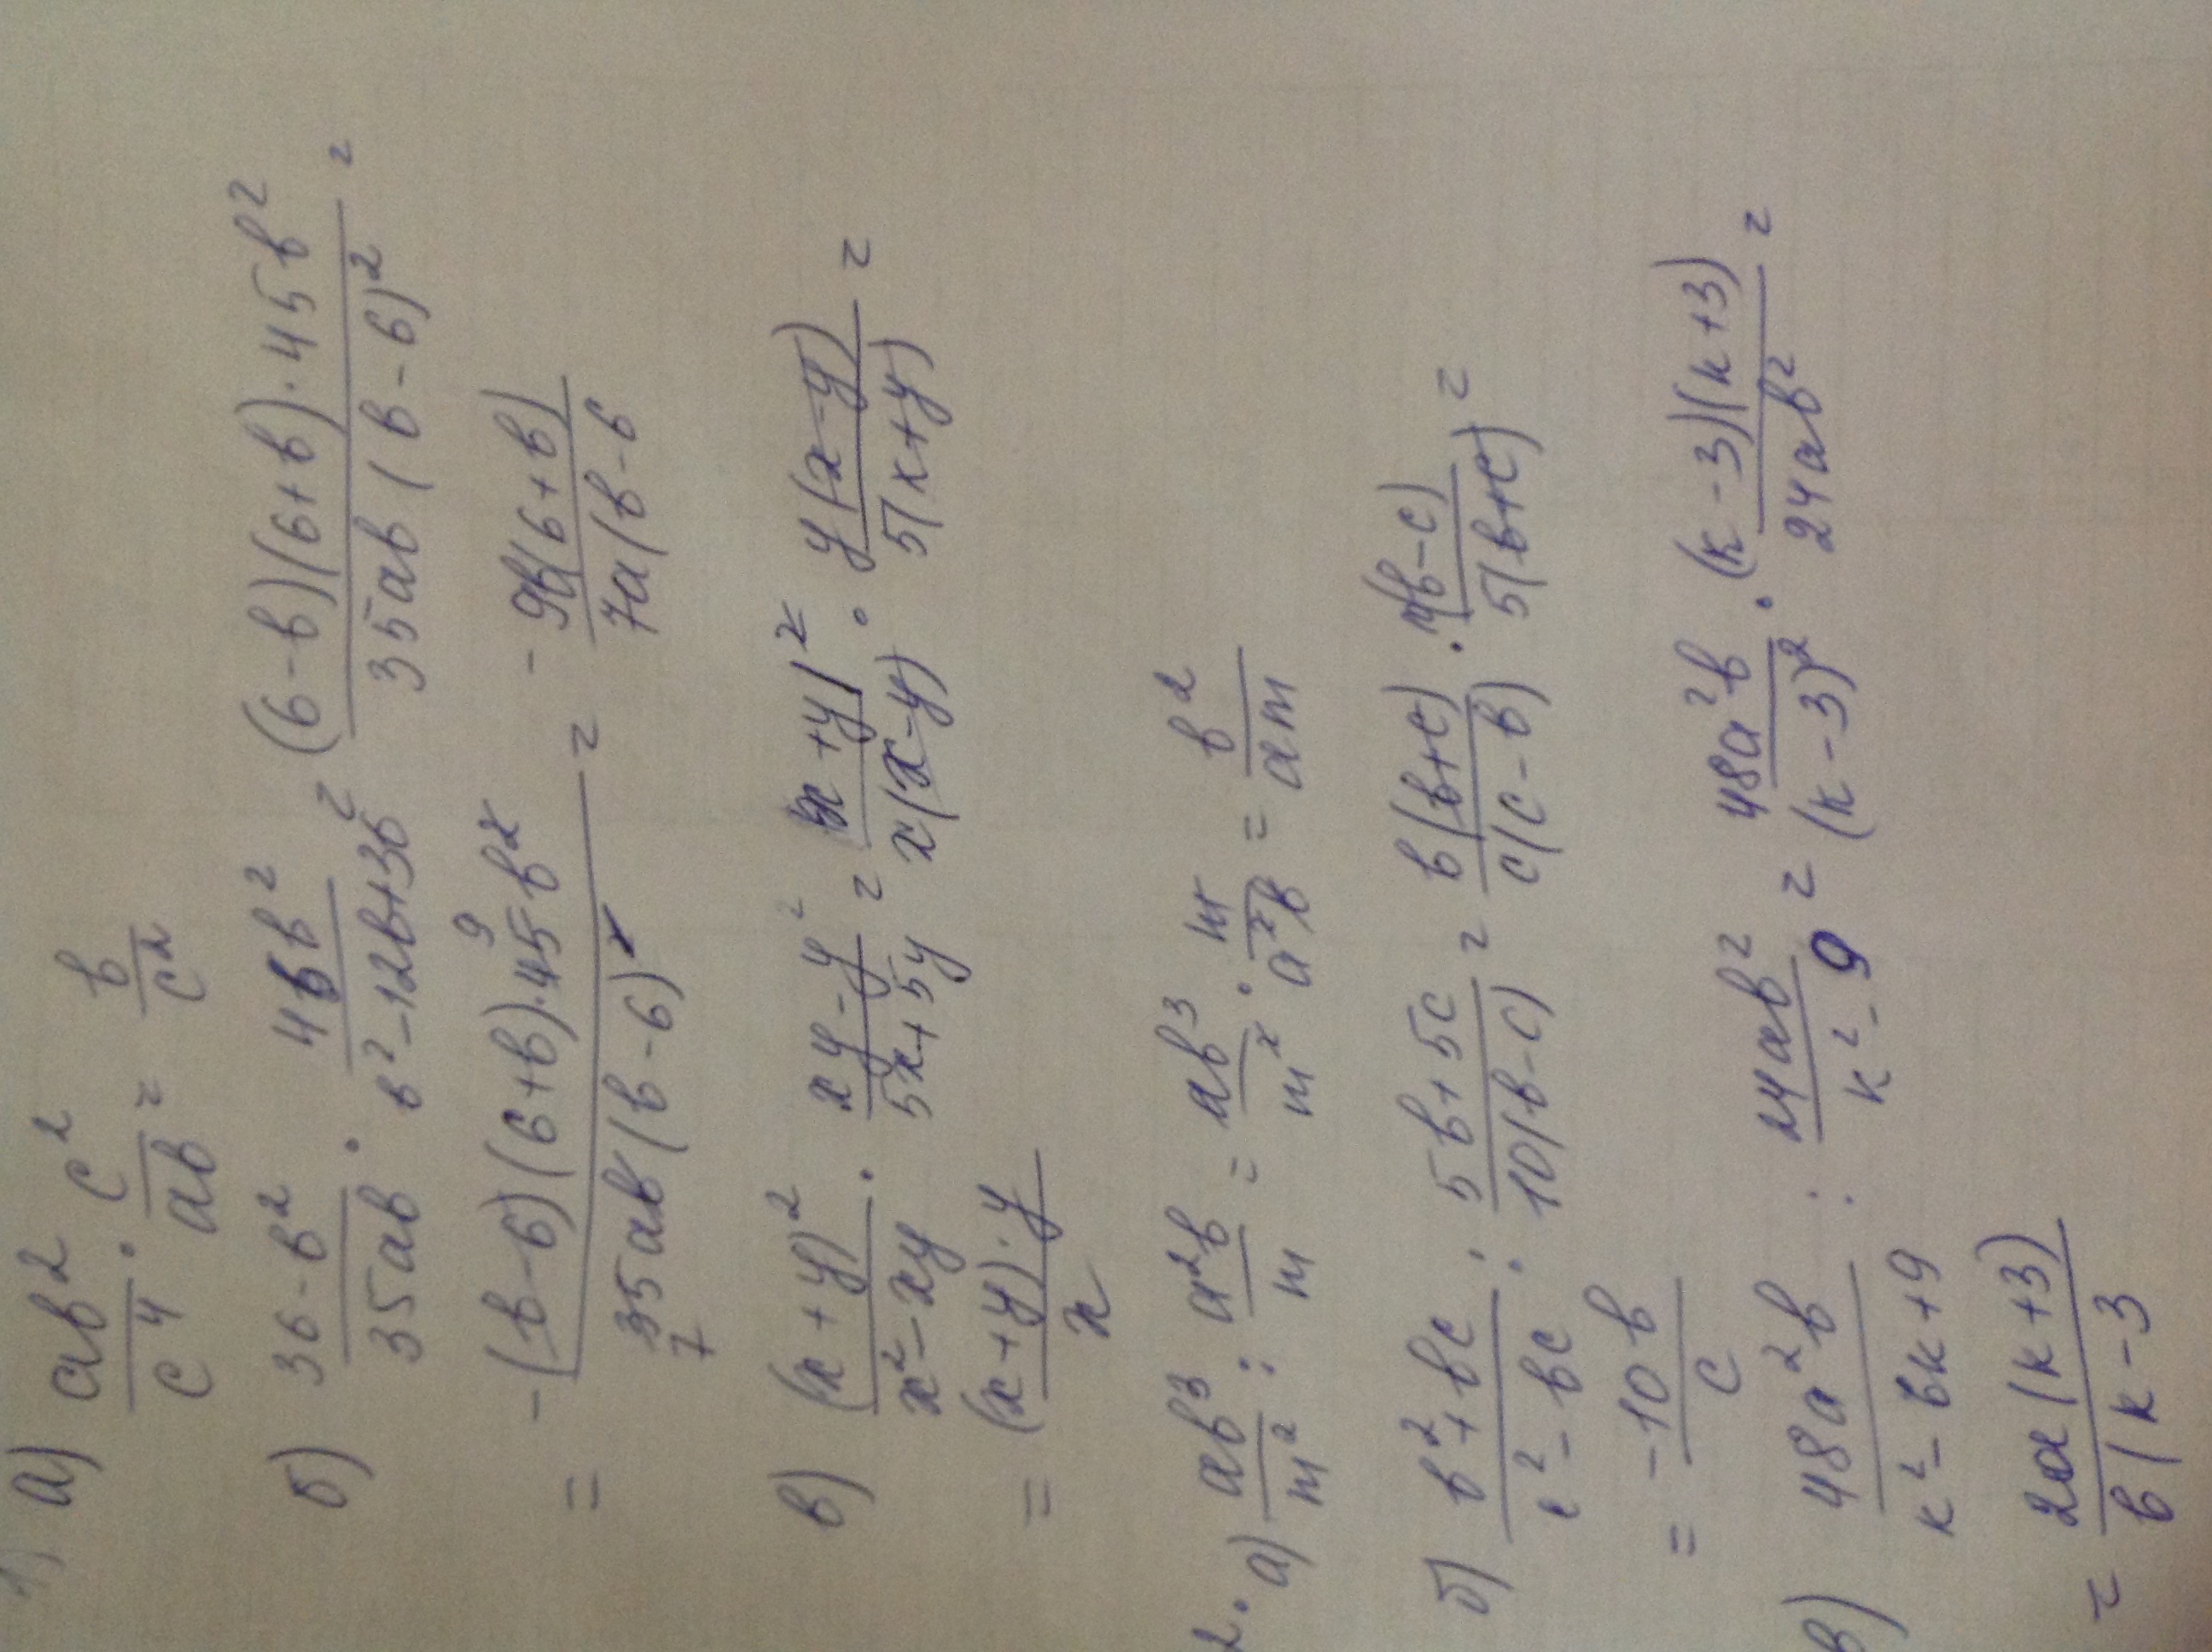 1) а) ab²/c⁴ · c²/ab = b/c²
б) (36-b²)/(35ab) · 4b b²/(b²-12b+36) = ((6-b)(6+b)·45b²)/(35ab(b-6)²) =
= -((b-6)(6+b)·45⁹b²)/(35₇ab(b-6)²) = -(9b(6+b))/(7a(b-6
в) (x+y)²/(x²-xy) · (xy-y²)/(5x+5y) = (x+y)²/(x(x-y)) · y(x-y)/(5(x+y)) =
= ((x+y)·y)/x
2. а) ab³/m² : a²b/m = ab³/m² · m/a²b = b²/am
б) (b²+bc)/(c²-bc) : (5b+5c)/(10(b-c)) = b(b+c)/(c(c-b)) · (b-c)/(5(b+c)) =
= -10b/c
в) 48a²b/(k²-6k+9) : 24ab²/(k²-9) = 48a²b/(k-3)² · (k-3)(k+3)/24ab² =
= 2a(k+3)/(b(k-3